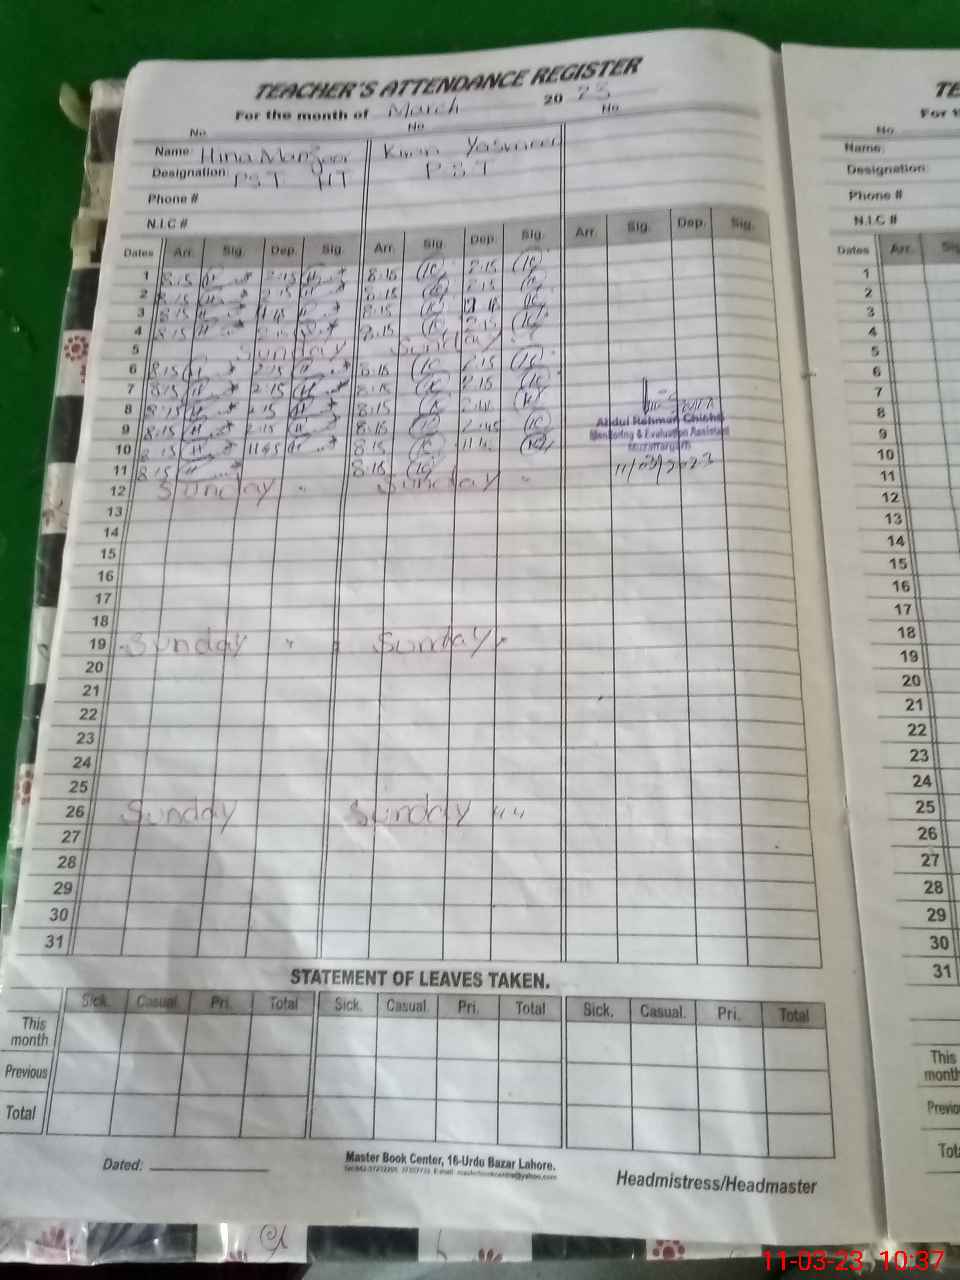 TEACHER'S ATTENDANCE REGISTER
For the month of March 2023
No. No. No.
Name: Hina Kiran Yasmeen
Designation: PST HT PST
Phone #
N.I.C #
Dates Arr. Sig. Dep. Sig. Arr. Sig. Dep. Sig. Arr. Sig. Dep. Sig.
1 8:15 2:15 8:15 2:15
2 8:15 2:15 8:15 2:15
3 8:15 8:15
4 8:15 2:15 8:15 2:15
5 Sunday Sunday
6 8:15 2:15 8:15 2:15
7 8:15 2:15 8:15 2:15
8 8:15 2:15 8:15
9 8:15 2:15 8:15 2:45
10 8:15 11:45 8:15
11 8:15 8:15
Abdul Rehman
Monitoring & Evaluation Assistant
Muzaffargarh
11/03/2023
12 Sunday Sunday
13
14
15
16
17
18
19 Sunday Sunday
20
21
22
23
24
25
26 Sunday Sunday
27
28
29
30
31
STATEMENT OF LEAVES TAKEN.
Sick. Casual. Pri. Total Sick. Casual. Pri. Total Sick. Casual. Pri. Total
This month
Previous
Total
Dated:
Master Book Center, 16-Urdu Bazar Lahore.
Headmistress/Headmaster
TE
For t
No.
Name:
Designation:
Phone #
N.I.C #
Dates Arr.
1
2
3
4
5
6
7
8
9
10
11
12
13
14
15
16
17
18
19
20
21
22
23
24
25
26
27
28
29
30
31
This
month
11-03-23 10:37